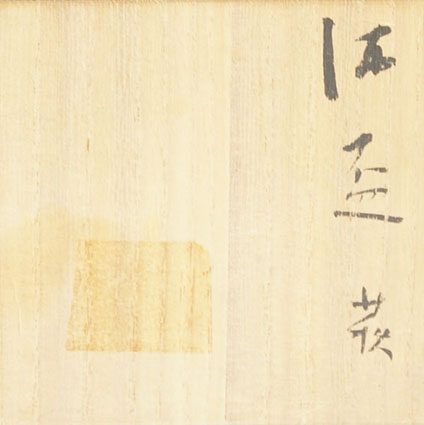 酒盃 萩